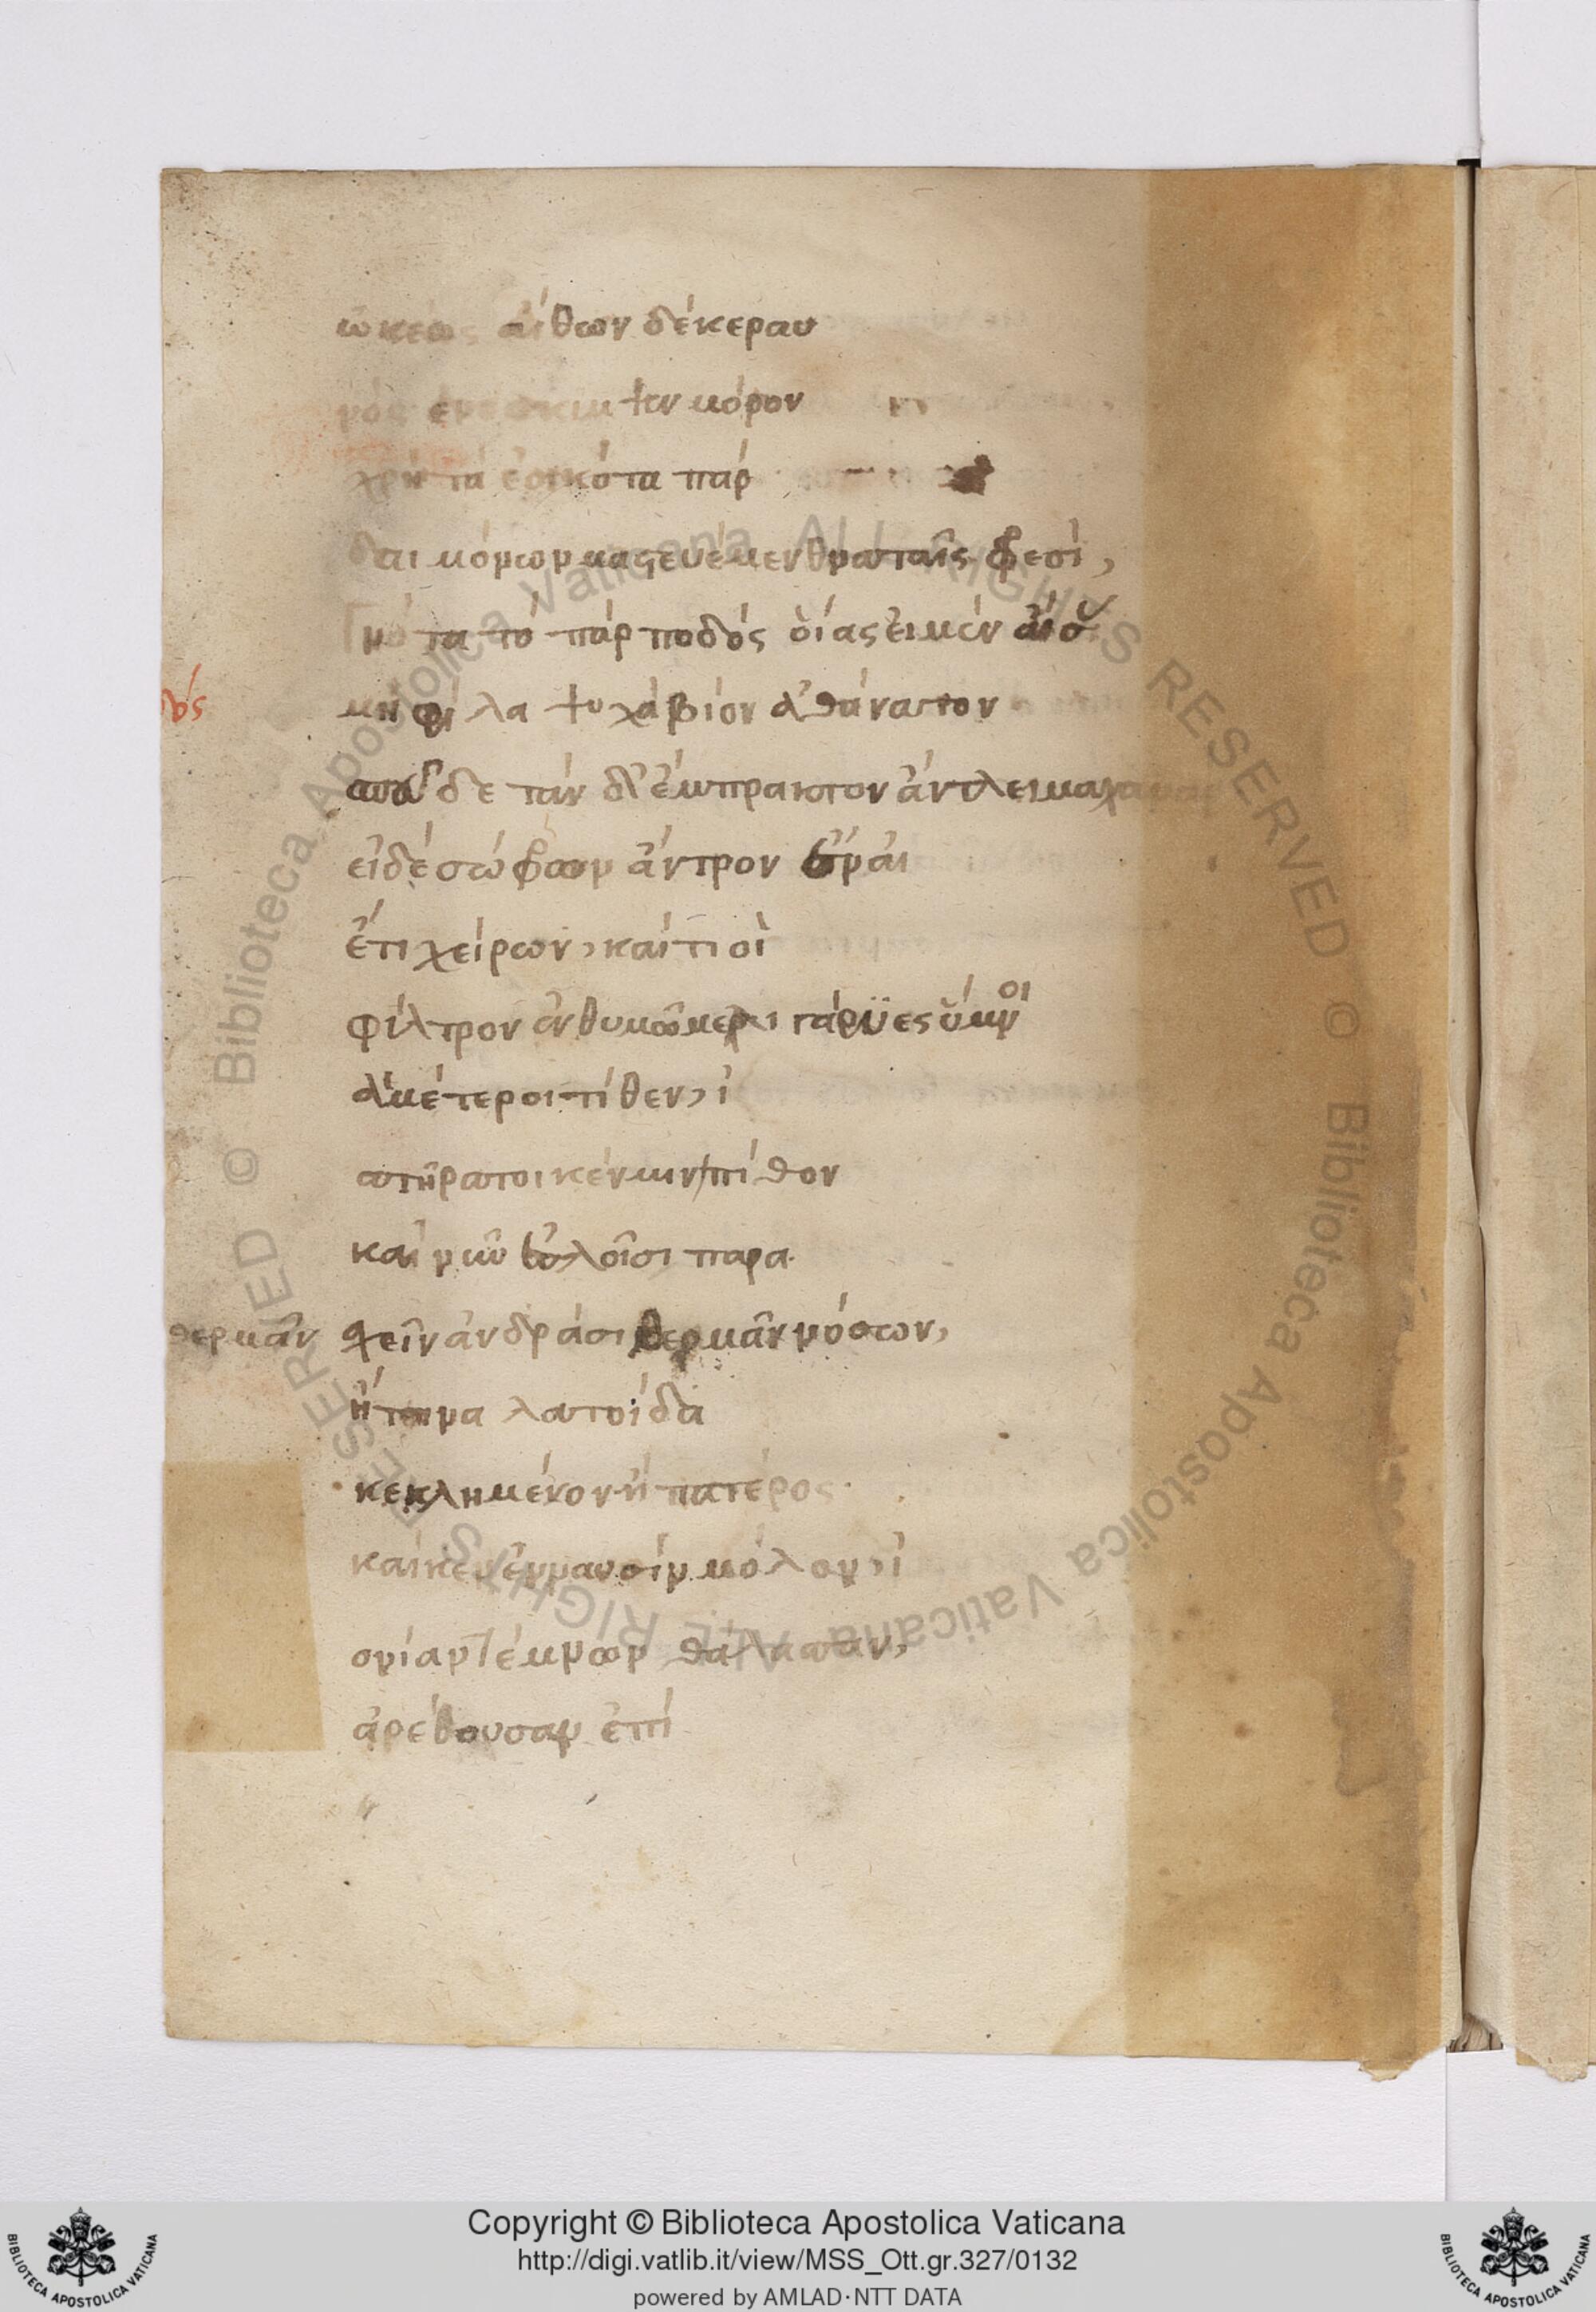 ὠκέως αἴθων δὲ κεραυ
νὸς ἐνέσκιμψεν μόρον
χρὴ τὰ ἐοικότα πάρ
δαιμόνων μαστευέμεν θναταῖς φρεσὶ,
γνόντα τὸ πὰρ ποδός οἵας εἰμὲν αἴσ
μὴ φίλα ψυχὰ βίον ἀθάνατον
σπεῦδε τὰν δ' ἔμπρακτον ἄντλει μαχανάν
εἰ δὲ σώφρων ἄντρον ἔναι
ἔτι χείρων, καί τι οἱ
φίλτρον ἐν θυμῷ μελιγάρυες ὕμνοι
ἁμέτεροι τίθεν, ἰ
ατῆρά τοι κέν μιν πίθον
καὶ νῦν ἐσλοῖσι παρα
σχεῖν ἀνδράσι θερμᾶν νόσων,
ἤ τινα λατοίδα
κεκλημένον ἢ πατέρος
καί κεν ἐν ναυσὶν μόλον, ἰ
ονίαν τέμνων θάλασσαν,
ἀρέθουσαν ἐπὶ
νός
θερμᾶν
Copyright © Biblioteca Apostolica Vaticana
http://digi.vatlib.it/view/MSS_Ott.gr.327/0132
powered by AMLAD·NTT DATA
BIBLIOTECA APOSTOLICA VATICANA
BIBLIOTECA APOSTOLICA VATICANA
Biblioteca Apostolica Vaticana ALL RIGHTS RESERVED ©
Biblioteca Apostolica Vaticana ALL RIGHTS RESERVED ©